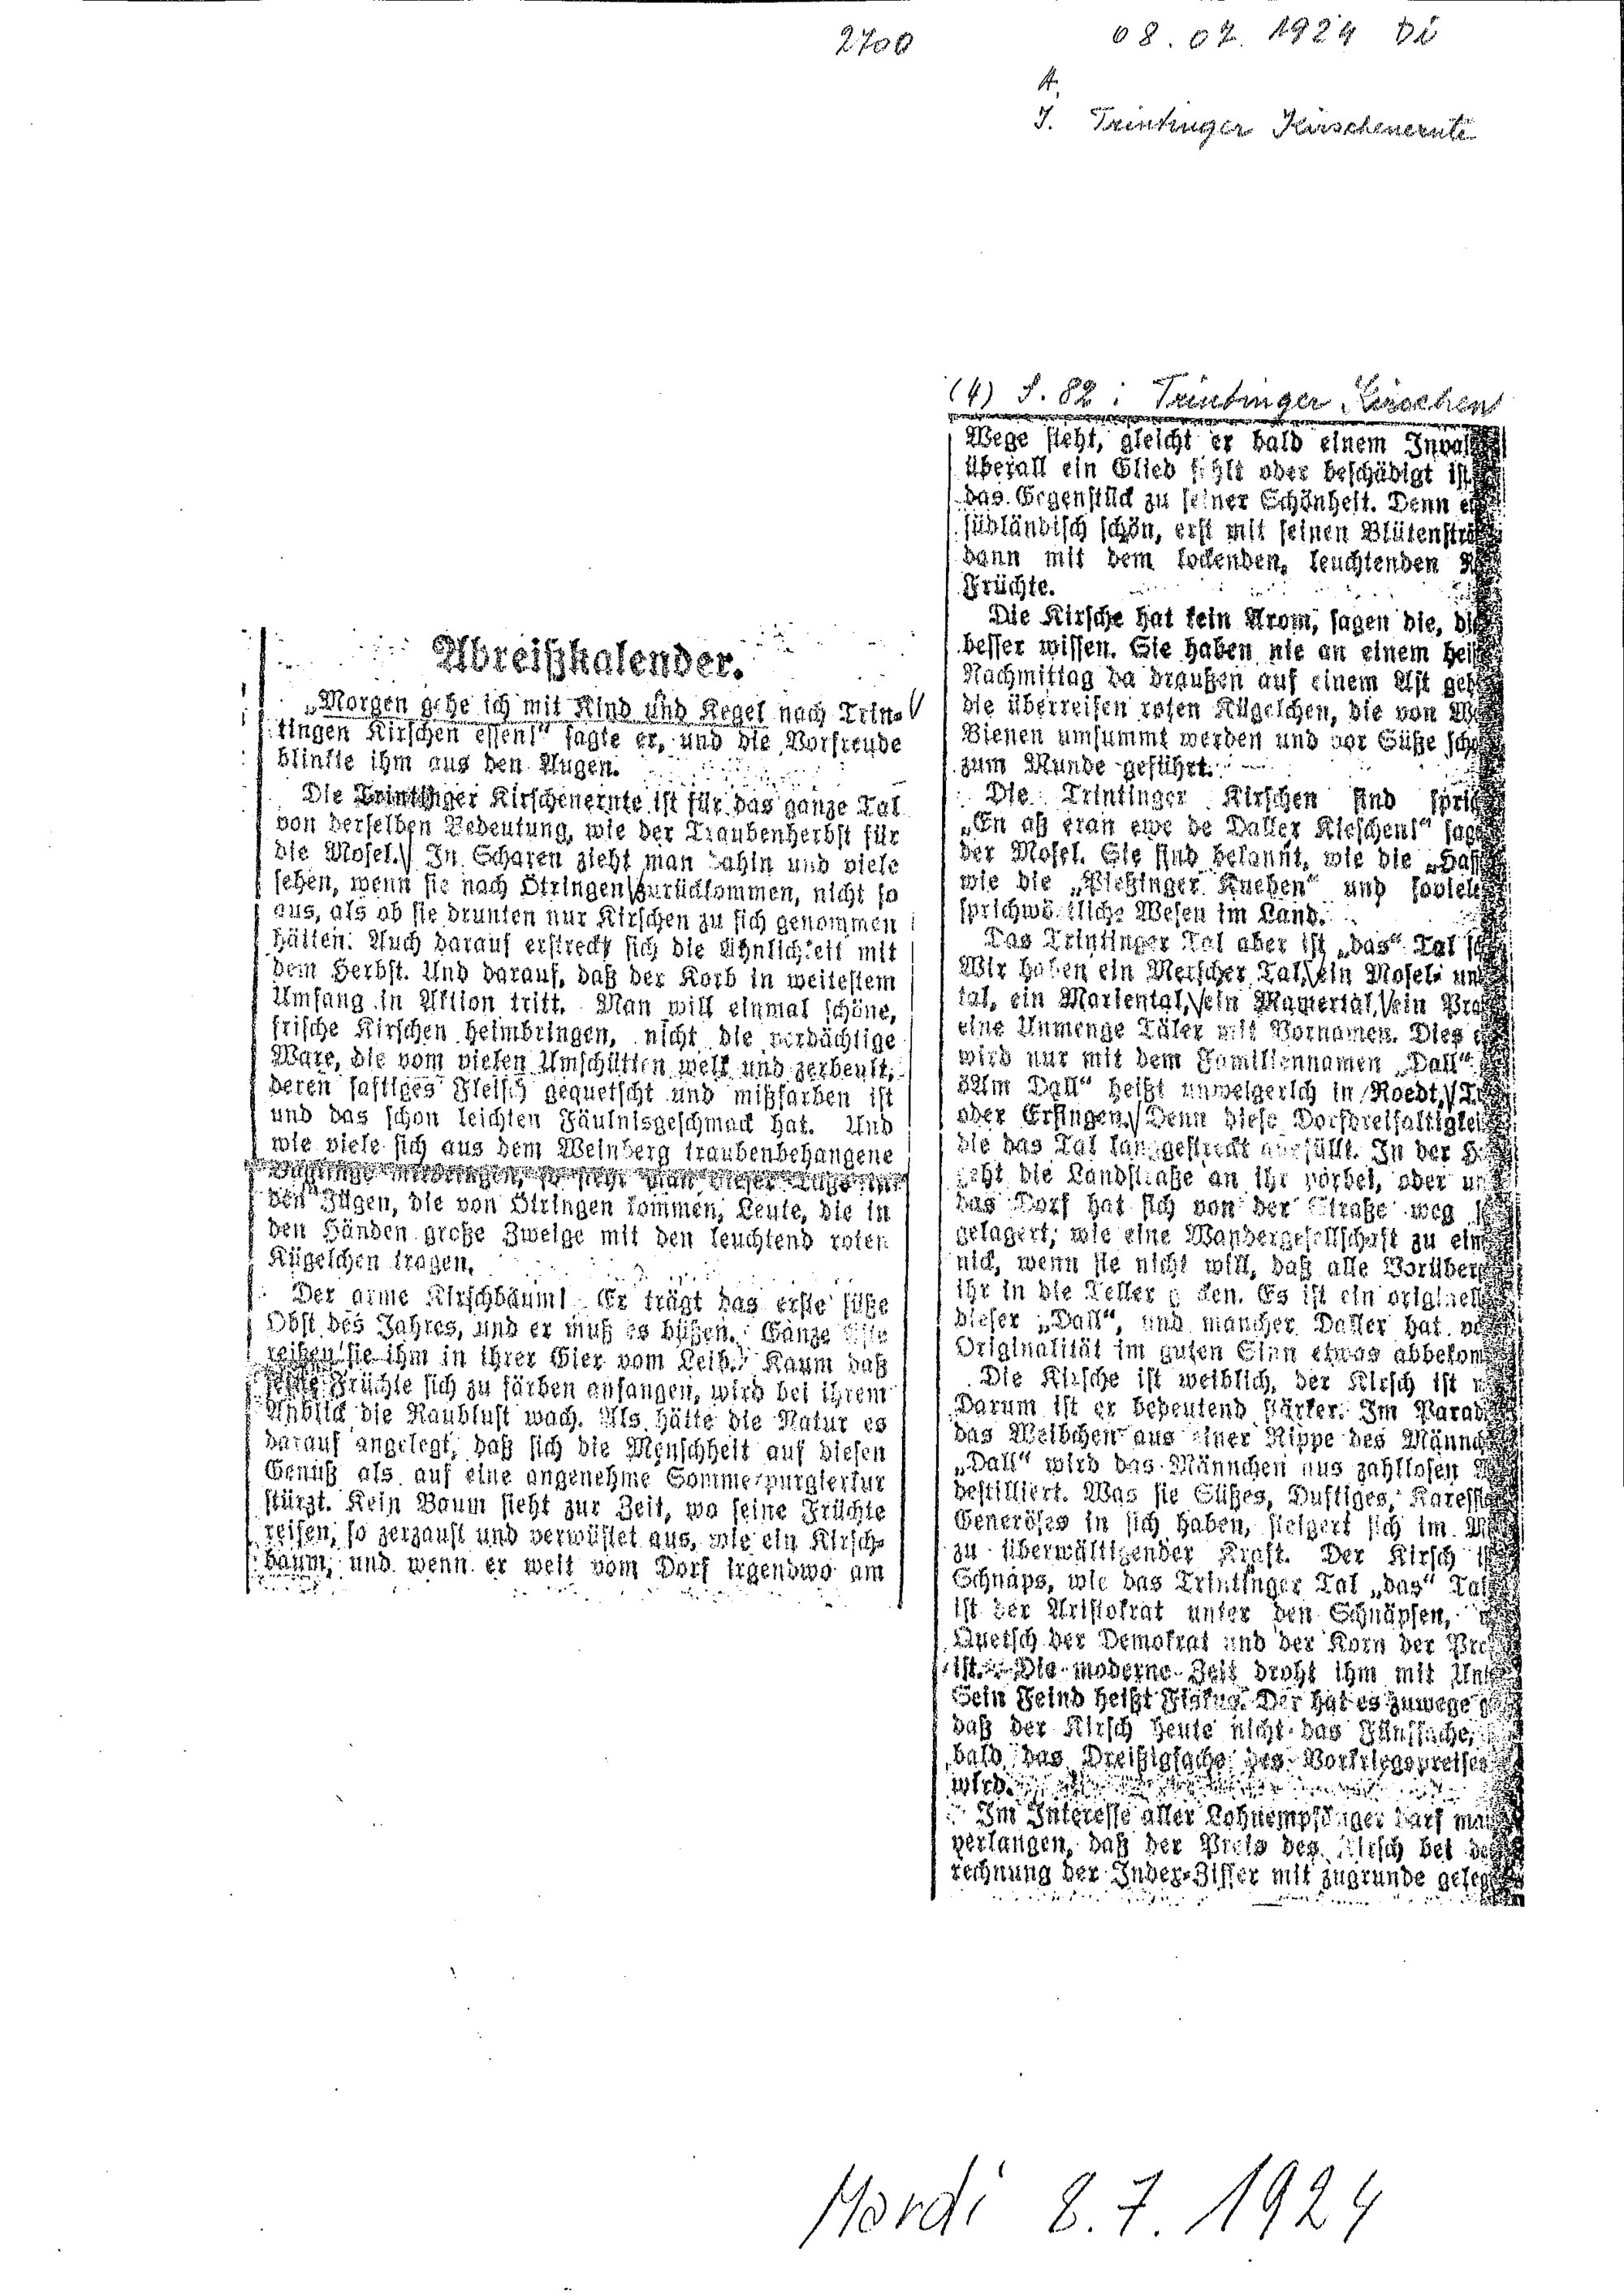 2700
08.07.1924 Di
A.
J. Trintinger Kirschenernte
Abreißkalender.
„Morgen gehe ich mit Kind und Kegel nach Trin-
tingen Kirschen essen!“ sagte er, und die Vorfreude
blinkte ihm aus den Augen.
Die Trintinger Kirschenernte ist für das ganze Tal
von derselben Bedeutung, wie der Traubenherbst für
die Mosel. In Scharen zieht man dahin und viele
sehen, wenn sie nach Ötringen zurückkommen, nicht so
aus, als ob sie drunten nur Kirschen zu sich genommen
hätten. Auch darauf erstreckt sich die Ähnlichkeit mit
dem Herbst. Und darauf, daß der Korb in weitestem
Umfang in Aktion tritt. Man will einmal schöne,
frische Kirschen heimbringen, nicht die verdächtige
Ware, die vom vielen Umschütten welk und zerbeult,
deren saftiges Fleisch gequetscht und mißfarben ist
und das schon leichten Fäulnisgeschmack hat. Und
wie viele sich aus dem Weinberg traubenbehangene
so sieht man dieser Tage
den Zügen, die von Ötringen kommen, Leute, die in
den Händen große Zweige mit den leuchtend roten
Kügelchen tragen.
Der arme Kirschbaum! Er trägt das erste süße
Obst des Jahres, und er muß es büßen. Ganze Äste
reißen sie ihm in ihrer Gier vom Leib. Kaum daß
seine Früchte sich zu färben anfangen, wird bei ihrem
Anblick die Raublust wach. Als hätte die Natur es
darauf angelegt, daß sich die Menschheit auf diesen
Genuß als auf eine angenehme Sommerpurgierkur
stürzt. Kein Baum sieht zur Zeit, wo seine Früchte
reifen, so zerzaust und verwüstet aus, wie ein Kirsch-
baum, und wenn er weit vom Dorf irgendwo am
(4) S. 82: Trintinger Kirschen
Wege steht, gleicht er bald einem
überall ein Glied fehlt oder beschädigt ist.
das Gegenstück zu seiner Schönheit. Denn
südländisch schön, erst mit seinen
dann mit dem lockenden, leuchtenden
Früchte.
Die Kirsche hat kein Arom, sagen die,
besser wissen. Sie haben nie an einem
Nachmittag da draußen auf einem Ast
die überreifen roten Kügelchen, die von
Bienen umsummt werden und vor Süße
zum Munde geführt.
Die Trintinger Kirschen sind
„En aß eran ewe de Daller Kieschen!“
der Mosel. Sie sind bekannt, wie die
wie die „Pießinger Knehen“ und
sprichwörtliche Wesen im Land.
Das Trintinger Tal aber ist „das“ Tal
Wir haben ein Merscher Tal, ein Mosel-
tal, ein Mariental, ein Mamertal, ein
eine Unmenge Täler mit Vornamen. Dies
wird nur mit dem Familiennamen „Dall“
„Am Dall“ heißt unweigerlch in Roedt,
oder Ersingen. Denn diese
die das Tal langgestreckt ausfüllt. In der
geht die Landstraße an ihr vorbei, oder
das Dorf hat sich von der Straße weg
gelagert, wie eine Wandergesellschaft zu
nick, wenn sie nicht will, daß alle
ihr in die Teller gucken. Es ist ein
dieser „Dall“, und mancher Daller hat
Originalität im guten Sinn etwas
Die Kirsche ist weiblich, der Kirsch ist
Darum ist er bedeutend stärker. Im
das Weibchen aus einer Rippe des
„Dall“ wird das Männchen aus zahllosen
destilliert. Was sie Süßes, Duftiges,
Generöses in sich haben, steigert sich im
zu überwältigender Kraft. Der Kirsch
Schnaps, wie das Trintinger Tal „das“
ist der Aristokrat unter den Schnäpsen,
Quetsch der Demokrat und der Korn der
ist. Die moderne Zeit droht ihm mit
Sein Feind heißt Fiskus. Der hat es zuwege
daß der Kirsch heute nicht das Fünffache,
bald das Dreißigfache des Vorkriegspreises
wird.
Im Interesse aller Lohnempfänger darf
verlangen, daß der Preis des Kirsch bei
rechnung der Index-Ziffer mit zugrunde
Mardi 8.7.1924